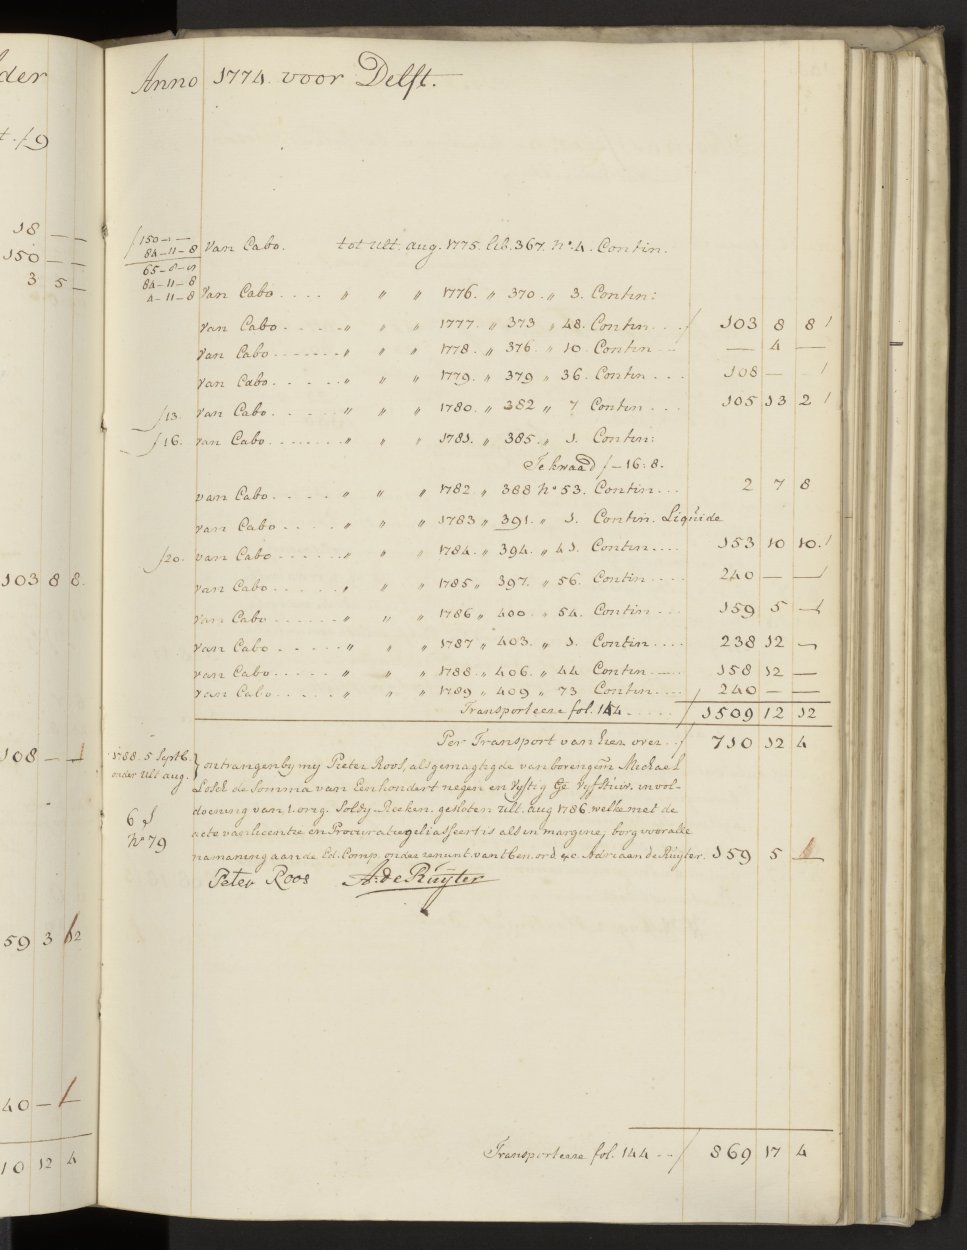 Anno 1774. voor Delft.
der
18 — —
150 — —
3 5 —
103 8 8.
108 — —
59 3 12
40 — —
10 12 4
150 — " —
84 – 11 – 8
84 – 11 – 8
4 – 11 – 8
van Cabo. tot ult. aug. 1775. lib. 367. No. 4. Contin.
van Cabo . . . . " " " 1776. " 370. " 3. Contin:
van Cabo . . . . . " " " 1777. " 373 " 48. Contin . . . / 103 8 8
van Cabo . . . . . . . " " " 1778. " 376. " 10. Contin . . . — 4 —
van Cabo . . . . . " " " 1779. " 379 " 36. Contin . . . 108 — —
/13. van Cabo . . . . . " " " 1780. " 382 " 7 Contin . . . 105 13 2
/16. van Cabo . . . . . . . " " " 1781. " 385. " 1. Contin:
Te kwaad / – 16: 8.
van Cabo . . . . . " " " 1782. " 388 No 53. Contin . . . 2 7 8
van Cabo . . . . . " " " 1783 " 391. " 1. Contin. Liquide
/20. van Cabo . . . . . . " " " 1784. " 394. " 41. Contin . . . . 153 10 10.
van Cabo . . . . . . " " " 1785 " 397. " 56. Contin . . . . 240 — —
van Cabo . . . . . . " " " 1786 " 400. " 54. Contin . . . 159 5 —
van Cabo . . . . . " " " 1787 " 403. " 1. Contin . . . . 238 12 —
van Cabo . . . . . " " " 1788. " 406. " 44 Contin . . . 158 12 —
van Cabo . . . . . " " " 1789 " 409 " 73 Contin . . . 240 — —
Transporteere fol. 144 . . . . . / 1509 12 12
Per Transport van hier over . . / 710 12 4
588. 5 Septb.
onder Ult aug.
ontfangen by my Pieter Roos, als gemagtigde van bovengem Michael
Losch de Somma van Eenhondert negen en Vyftig Ge Vyf Stuiv. in vol-
doening van 1. orig. Soldy-Reeken. gesloten ult. aug 1786. welke met de
6 S
No 79
acte van licentie en Procuratie geliasseert is als in margine, borg voor alle
namaning aan de Ed. Comp. onder renunt. van t ben. ord. &c. Adriaan de Ruyter. 159 5 —
Peter Roos A: de Ruijter
Transporteere fol. 144 . . / 869 17 4